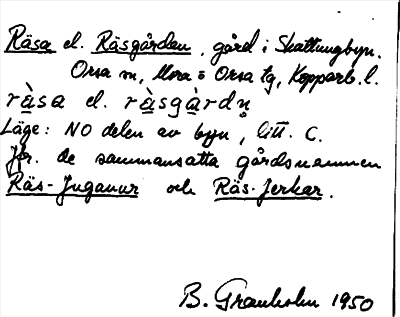 Räsa el. Räsgården, gård i Skattungbyn.
Orsa sn, Mora o Orsa tg, Kopparb. l.
rà̱sa el. rà̱sgà̱rdn̥
Läge: NO delen av byn, litt. C.
Jfr. de sammansatta gårdsnamnen
Räs-Juganur och Räs-Jerkar.
B. Granholm 1950